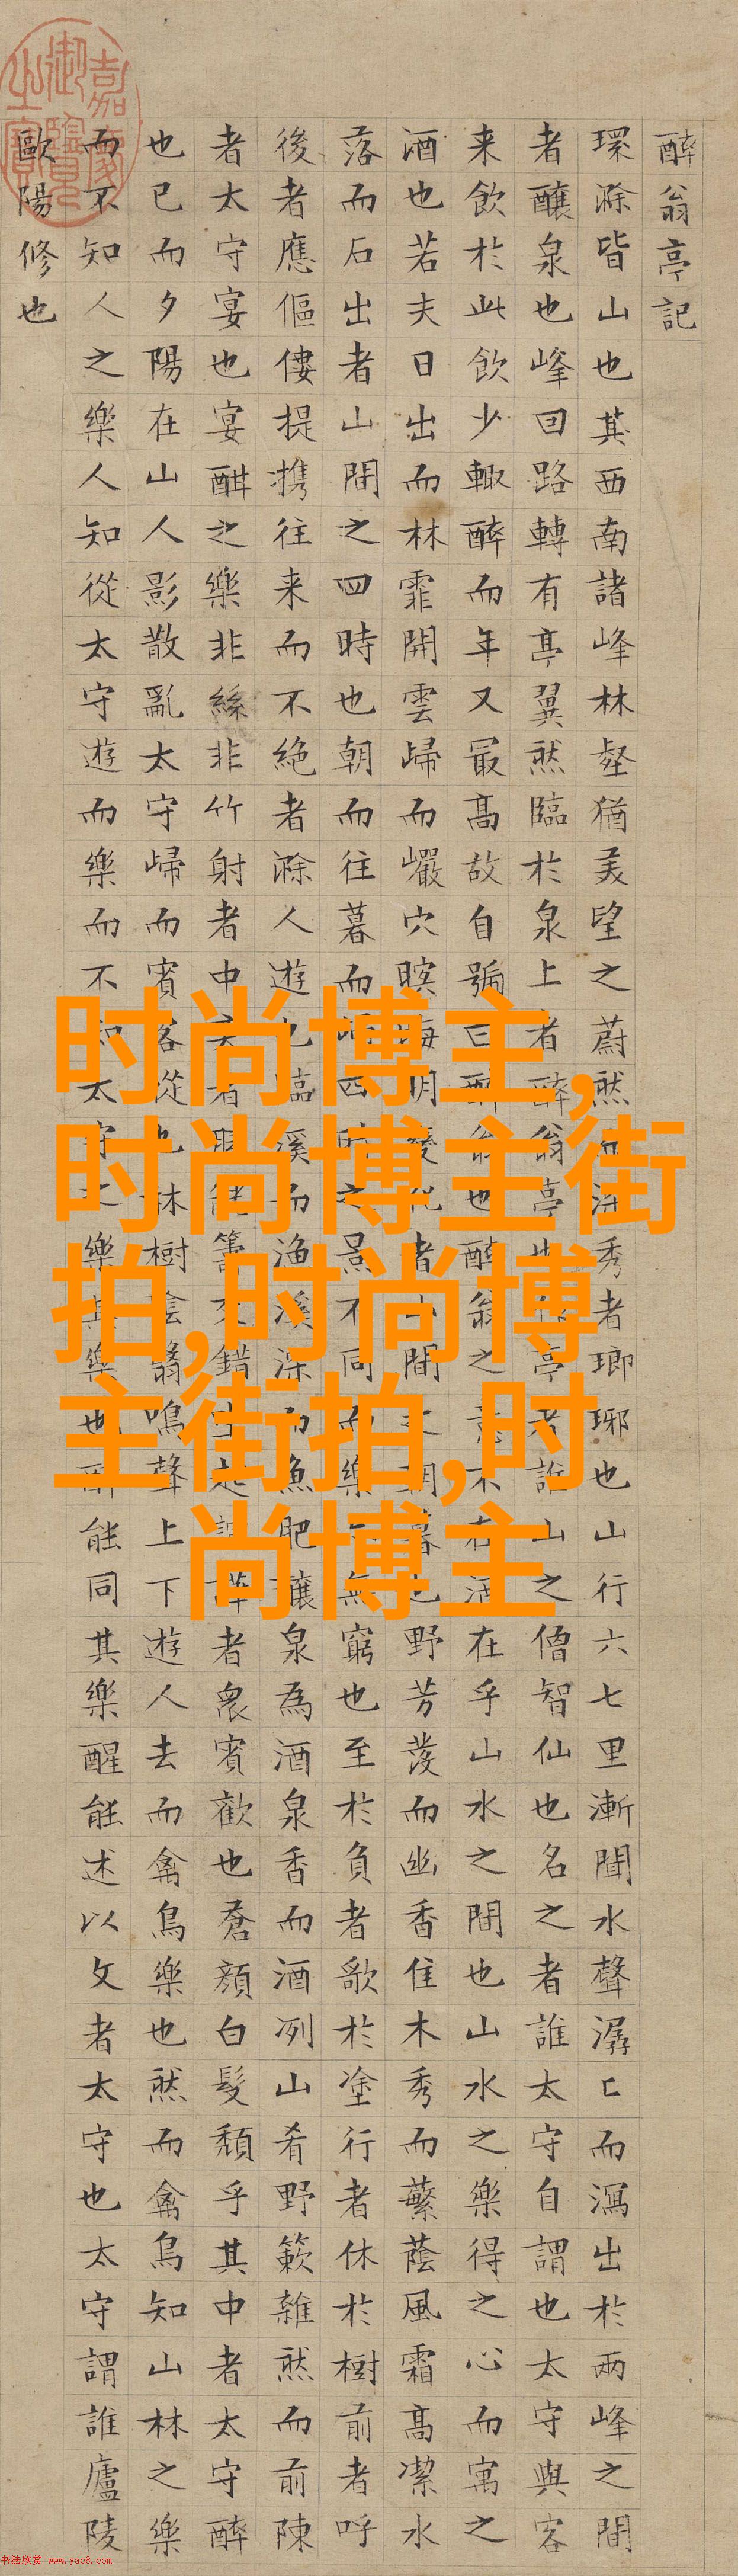 醉翁亭記
環滁皆山也其西南諸峰林壑猶美望之蔚然秀者瑯琊也山行六七里漸聞水聲潺〻而瀉出於兩峰之間
者釀泉也峰回路轉有亭翼然臨於泉上者醉翁亭也亭者誰山之僧智仙也名之者誰太守自謂也太守與客
来飲於此飲少輙醉而年又最高故自號曰醉翁也醉翁之意不在酒在乎山水之間也山水之樂得之心而寓之
酒也若夫日出而林霏開雲歸而巖穴暝晦明變者間之朝暮也野芳發而幽香佳木秀而蘩蔭風霜高潔水
落而石出者山間之四時也朝而往暮而四時之景不同而樂無窮也至於負者歌於塗行者休於樹前者呼
後者應傴僂提携往来而不絶者滁人遊也臨溪而漁溪深而魚肥釀泉為酒泉香而酒冽山肴野蔌雜然而前陳
者太守宴也宴酣之樂非絲非竹射者中者籌交錯起者衆賓歡也蒼顏白髮頹乎其中者太守醉
也已而夕陽在山人影散亂太守歸而賓客從也林樹陰翳鳴聲上下遊人去而禽鳥樂也然而禽鳥知山林之樂
而不知人之樂人知從太守遊而樂而不知太守之樂其樂也醉能同其樂醒能述以文者太守也太守謂誰廬陵
歐陽修也
嘉慶御覽之寶
时尚博主,
时尚博主街
拍,时尚博
主街拍,时
尚博主
书法欣赏 www.yac8.com